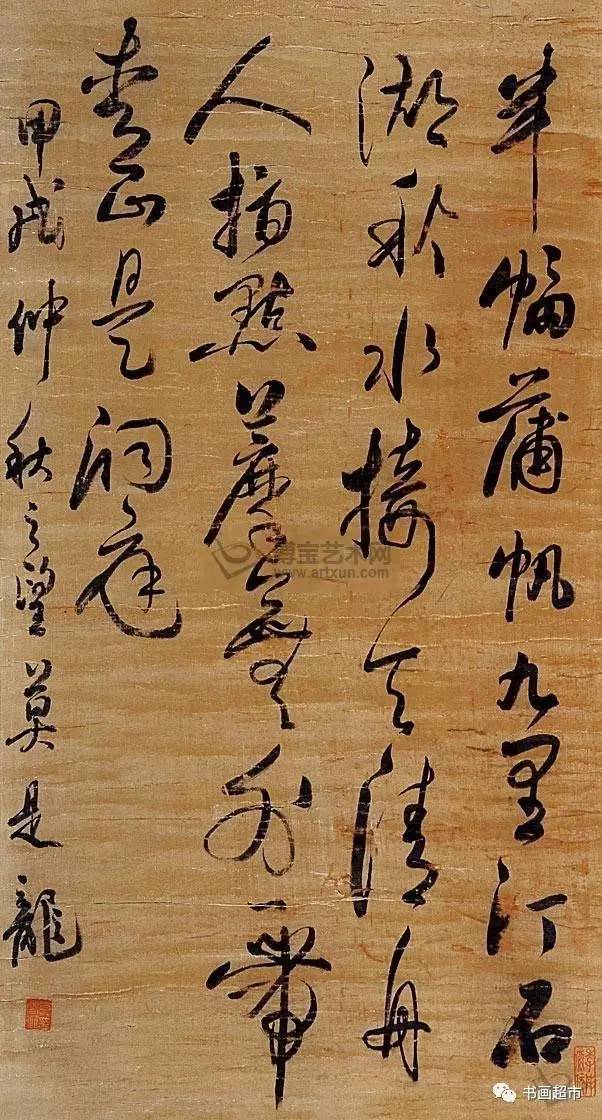 半幅蒲帆九里汀石
湖秋水接天清舟
人指點蘼蕪外一帶
青山是洞庭
甲戌仲秋之望莫是龍
博宝艺术网
www.artxun.com
书画超市